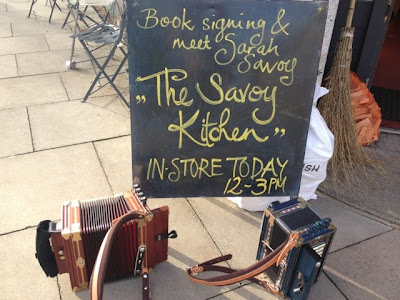 Book signing &
meet Sarah
Savoy
„The Savoy
Kitchen"
IN-STORE TODAY
12-3PM